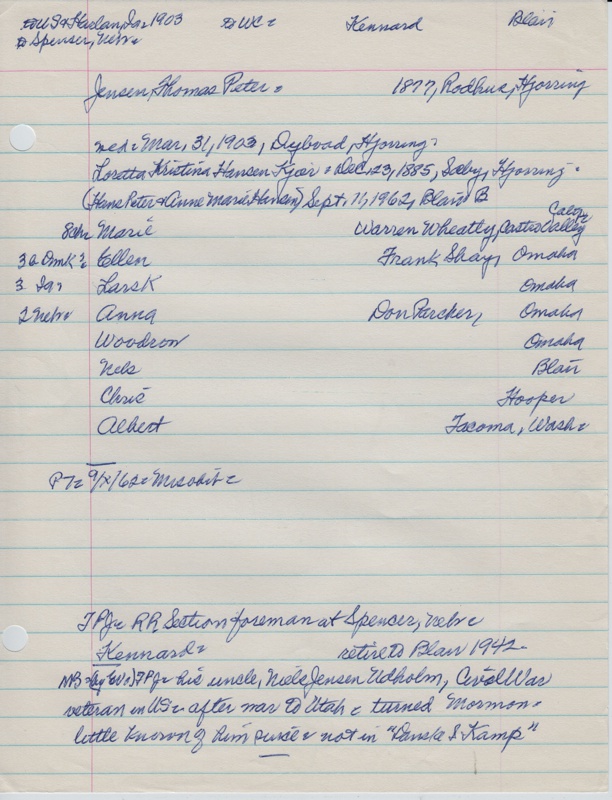 to US & Harlan, Ia 1903 to WC Kennard Blair
to Spencer, Nebr
Jensen, Thomas Peter 1877, Rodhus, Hjorring
med Mar, 31, 1903, Dybvad, Hjorring
Loretta Kristina Hansen Kjær Dec 23, 1885, Saeby, Hjorring
(Hans Peter & Anne Marie Hansen) Sept. 11, 1962, Blair B
8 ch Marie Warren Wheatly, Castro Valley Calif
3 @ Omk Ellen Frank Shay, Omaha
3 Ia Lars K Omaha
2 Nebr Anna Don Parcher, Omaha
Woodrow Omaha
Nels Blair
Chris Hooper
Albert Tacoma, Wash
PT 9/x/62 Mrs obit
TPJ RR Section foreman at Spencer, Nebr
Kennard retire to Blair 1942
NB TPJ his uncle, Niels Jensen Udholm, Civil War
veteran in US after war to Utah turned Mormon
little known of him since not in "Danske I Kamp"